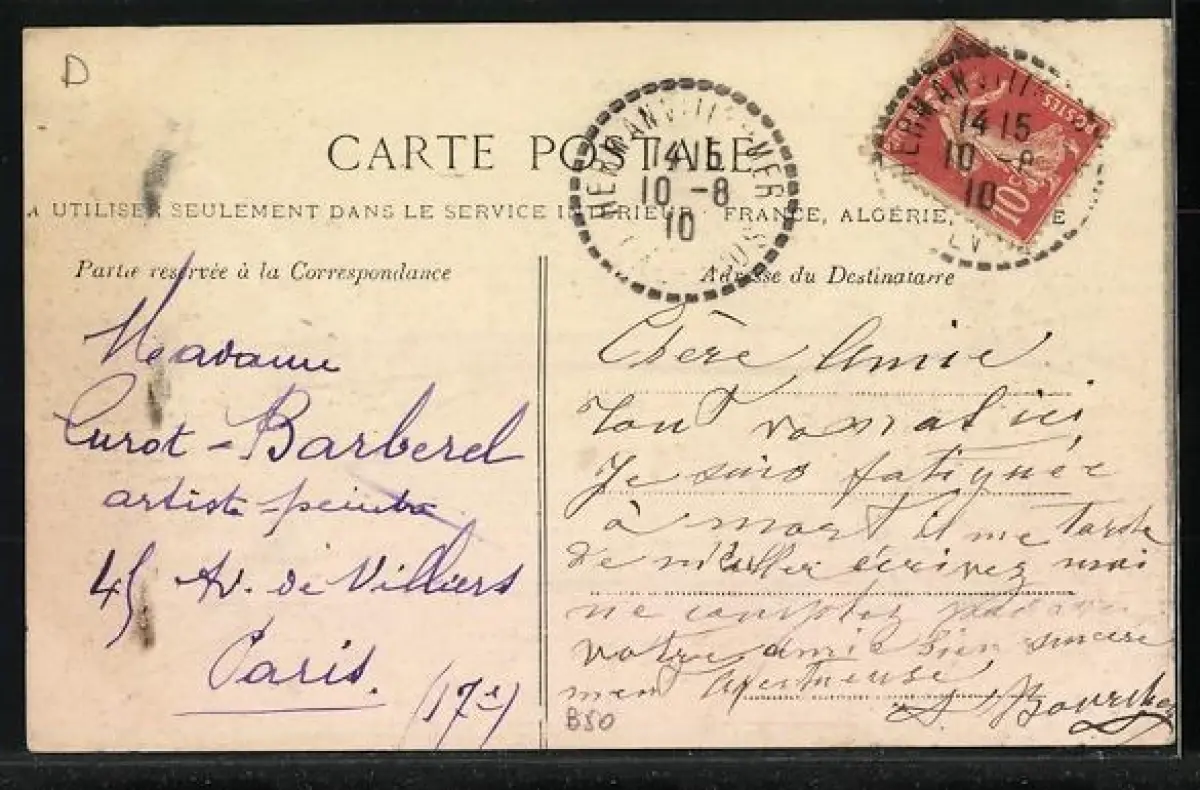 D
CARTE POSTALE
A UTILISER SEULEMENT DANS LE SERVICE INTÉRIEUR FRANCE, ALGÉRIE,
HERMANVILLE
14 15
10 - 8
10
HERMANVILLE
14 15
10 - 8
10
POSTES
10c
Partie réservée à la Correspondance
Adresse du Destinataire
Madame
Curot - Barberel
artiste - peintre
45 Av. de Villiers
Paris.
(17e)
Chère Amie
Tout va mal ici
Je suis fatiguée
à mort il me tarde
de m'en aller écrivez moi
ne comptez pas
votre amie bien sincere
ment
B50